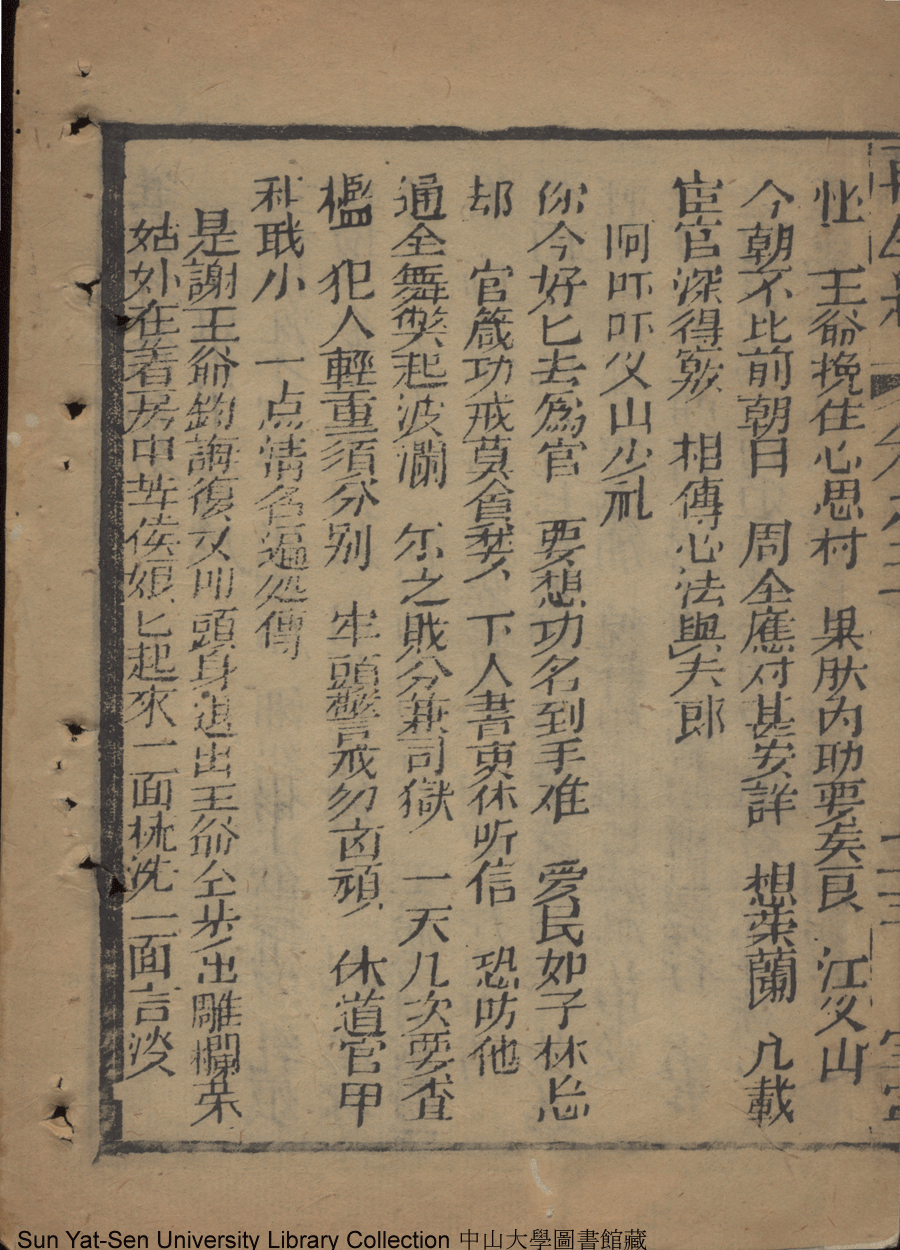 怅 王爺挽住心思村 果肰内功要矣良 江乂山
今朝不比前朝日 周全應付甚安詳 想荣蘭 凡載
宦官深得竅 相傳心法與夫郎
 同吓吓乂山少礼
你今好匕去為官 要想功名到手难 爱民如子休忘
却 官箴功戒莫貪婪 下人書吏休听信 恐防他
通仝舞獘起波瀾 尔之戝分兼司獄 一天几次要查
檻 犯人輕重須分别 牢頭警戒勿囱頑 休道官甲
利戝小 一点清名遍処傳
是謝王爺鈞誨復又叩頭身退出王爺仝步出雕欄荣
姑外在着房中等侯娘匕起來一面梳洗一面言淡
Sun Yat-Sen University Library Collection 中山大學圖書館藏